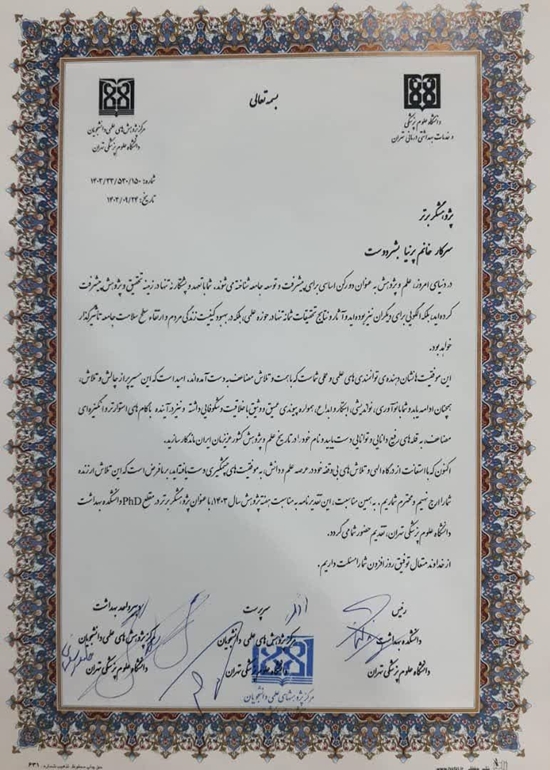 بسمه تعالی
دانشگاه علوم پزشکی
و خدمات بهداشتی درمانی تهران
مرکز پژوهش های علمی دانشجویان
دانشگاه علوم پزشکی تهران
شماره: ۱۴۰۳/۲۲/۵۳۰/۱۵۰
تاریخ: ۱۴۰۳/۰۹/۲۴
پژوهشگر برتر
سرکار خانم پرنیا بشردوست
در دنیای امروز، علم و پژوهش به عنوان دو رکن اساسی برای پیشرفت و توسعه جامعه شناخته می شوند. شما با تعهد و پشتکار نه تنها در زمینه تحقیق و پژوهش پیشرفت
کرده اید، بلکه الگویی برای دیگران نیز بوده اید و آثار و نتایج تحقیقات شما نه تنها در حوزه علمی، بلکه در بهبود کیفیت زندگی مردم و ارتقاء سطح سلامت جامعه تأثیرگذار
خواهد بود.
این موفقیت ها نشان دهنده ی توانمندی های علمی و عملی شماست که با همت و تلاش مضاعف به دست آمده اند. امید است که این مسیر پر از چالش و تلاش،
همچنان ادامه یابد و شما با نوآوری، نواندیشی، ابتکار و ابداع، همواره پیوندی عمیق و وثیق با خلاقیت و شکوفایی داشته و نیز در آینده با گام های استوارتر و انگیزه ای
مضاعف، به قله های رفیع دانایی و توانایی دست یابید و نام خود را در تاریخ علم و پژوهش کشور عزیزمان ایران ماندگار سازید.
اکنون که با استعانت از درگاه الهی و تلاش های بی وقفه خود در عرصه علم و دانش، به موفقیت های چشمگیری دست یافته اید، بر ما فرض است که این تلاش ارزنده
شما را ارج نهیم و محترم شماریم. به همین مناسبت، این تقدیرنامه به مناسبت هفته پژوهش سال ۱۴۰۳، با عنوان پژوهشگر برتر در مقطع PhD دانشکده بهداشت
دانشگاه علوم پزشکی تهران، تقدیم حضور شما می گردد.
از خداوند متعال توفیق روز افزون شما را مسئلت داریم.
رئیس
دانشکده بهداشت
دانشگاه علوم پزشکی تهران
سرپرست
مرکز پژوهش های علمی دانشجویان
دانشگاه علوم پزشکی تهران
مرکز پژوهشهای علمی دانشجویان
دبیر واحد بهداشت
مرکز پژوهش های علمی دانشجویان
دانشگاه علوم پزشکی تهران